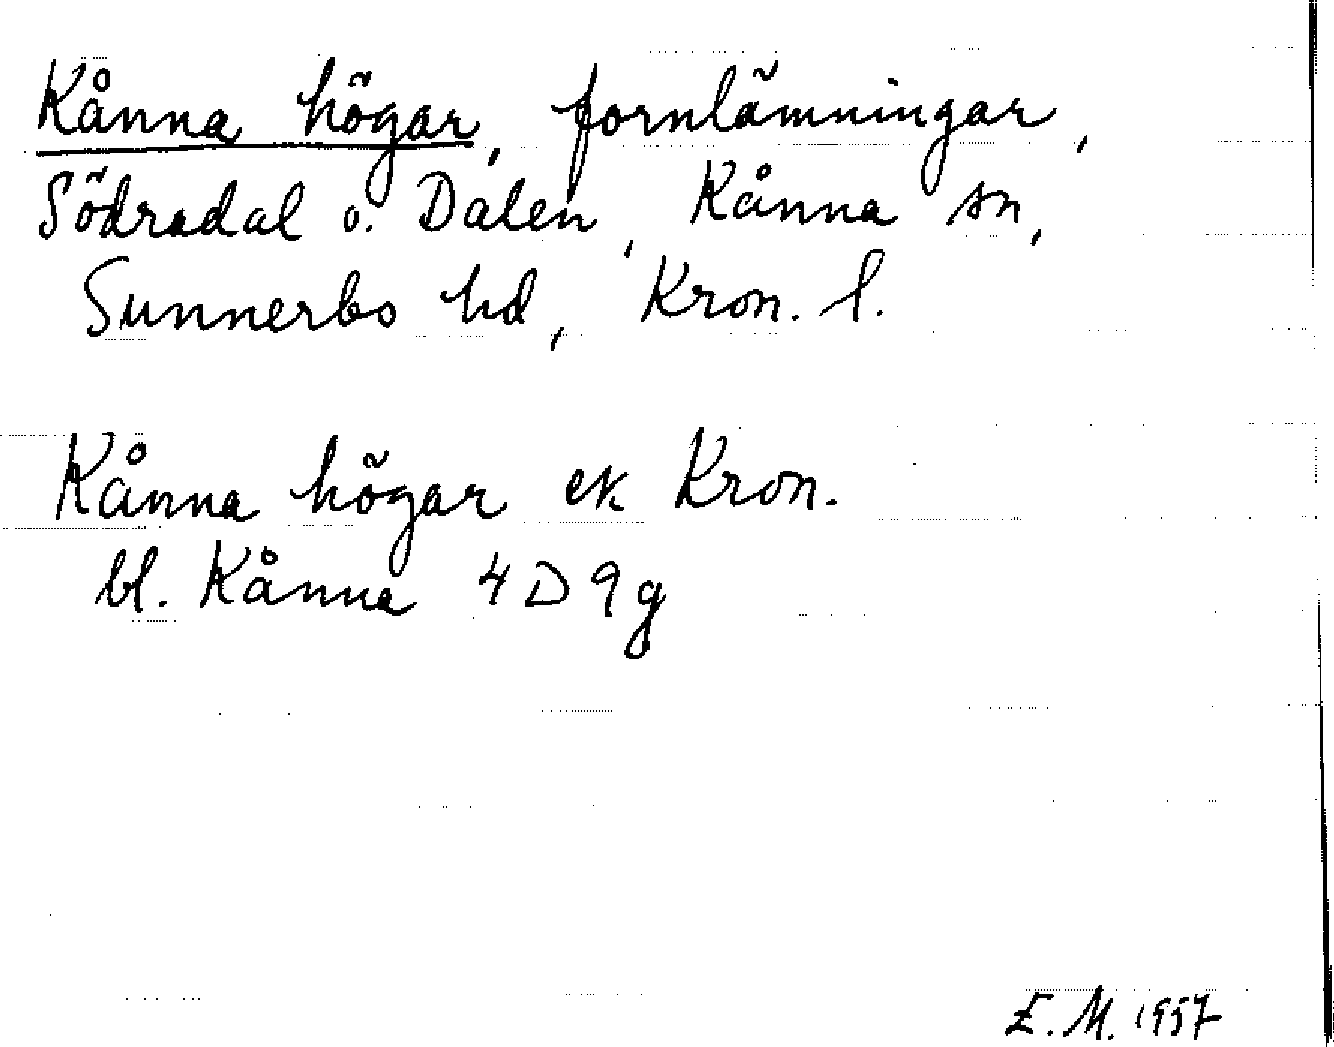 Kånna högar, fornlämningar,
Södradal o. Dalen, Kånna sn,
Sunnerbo hd, Kron. l.
Kånna högar ek Kron.
bl. Kånna 4D9g
E. M. 1957